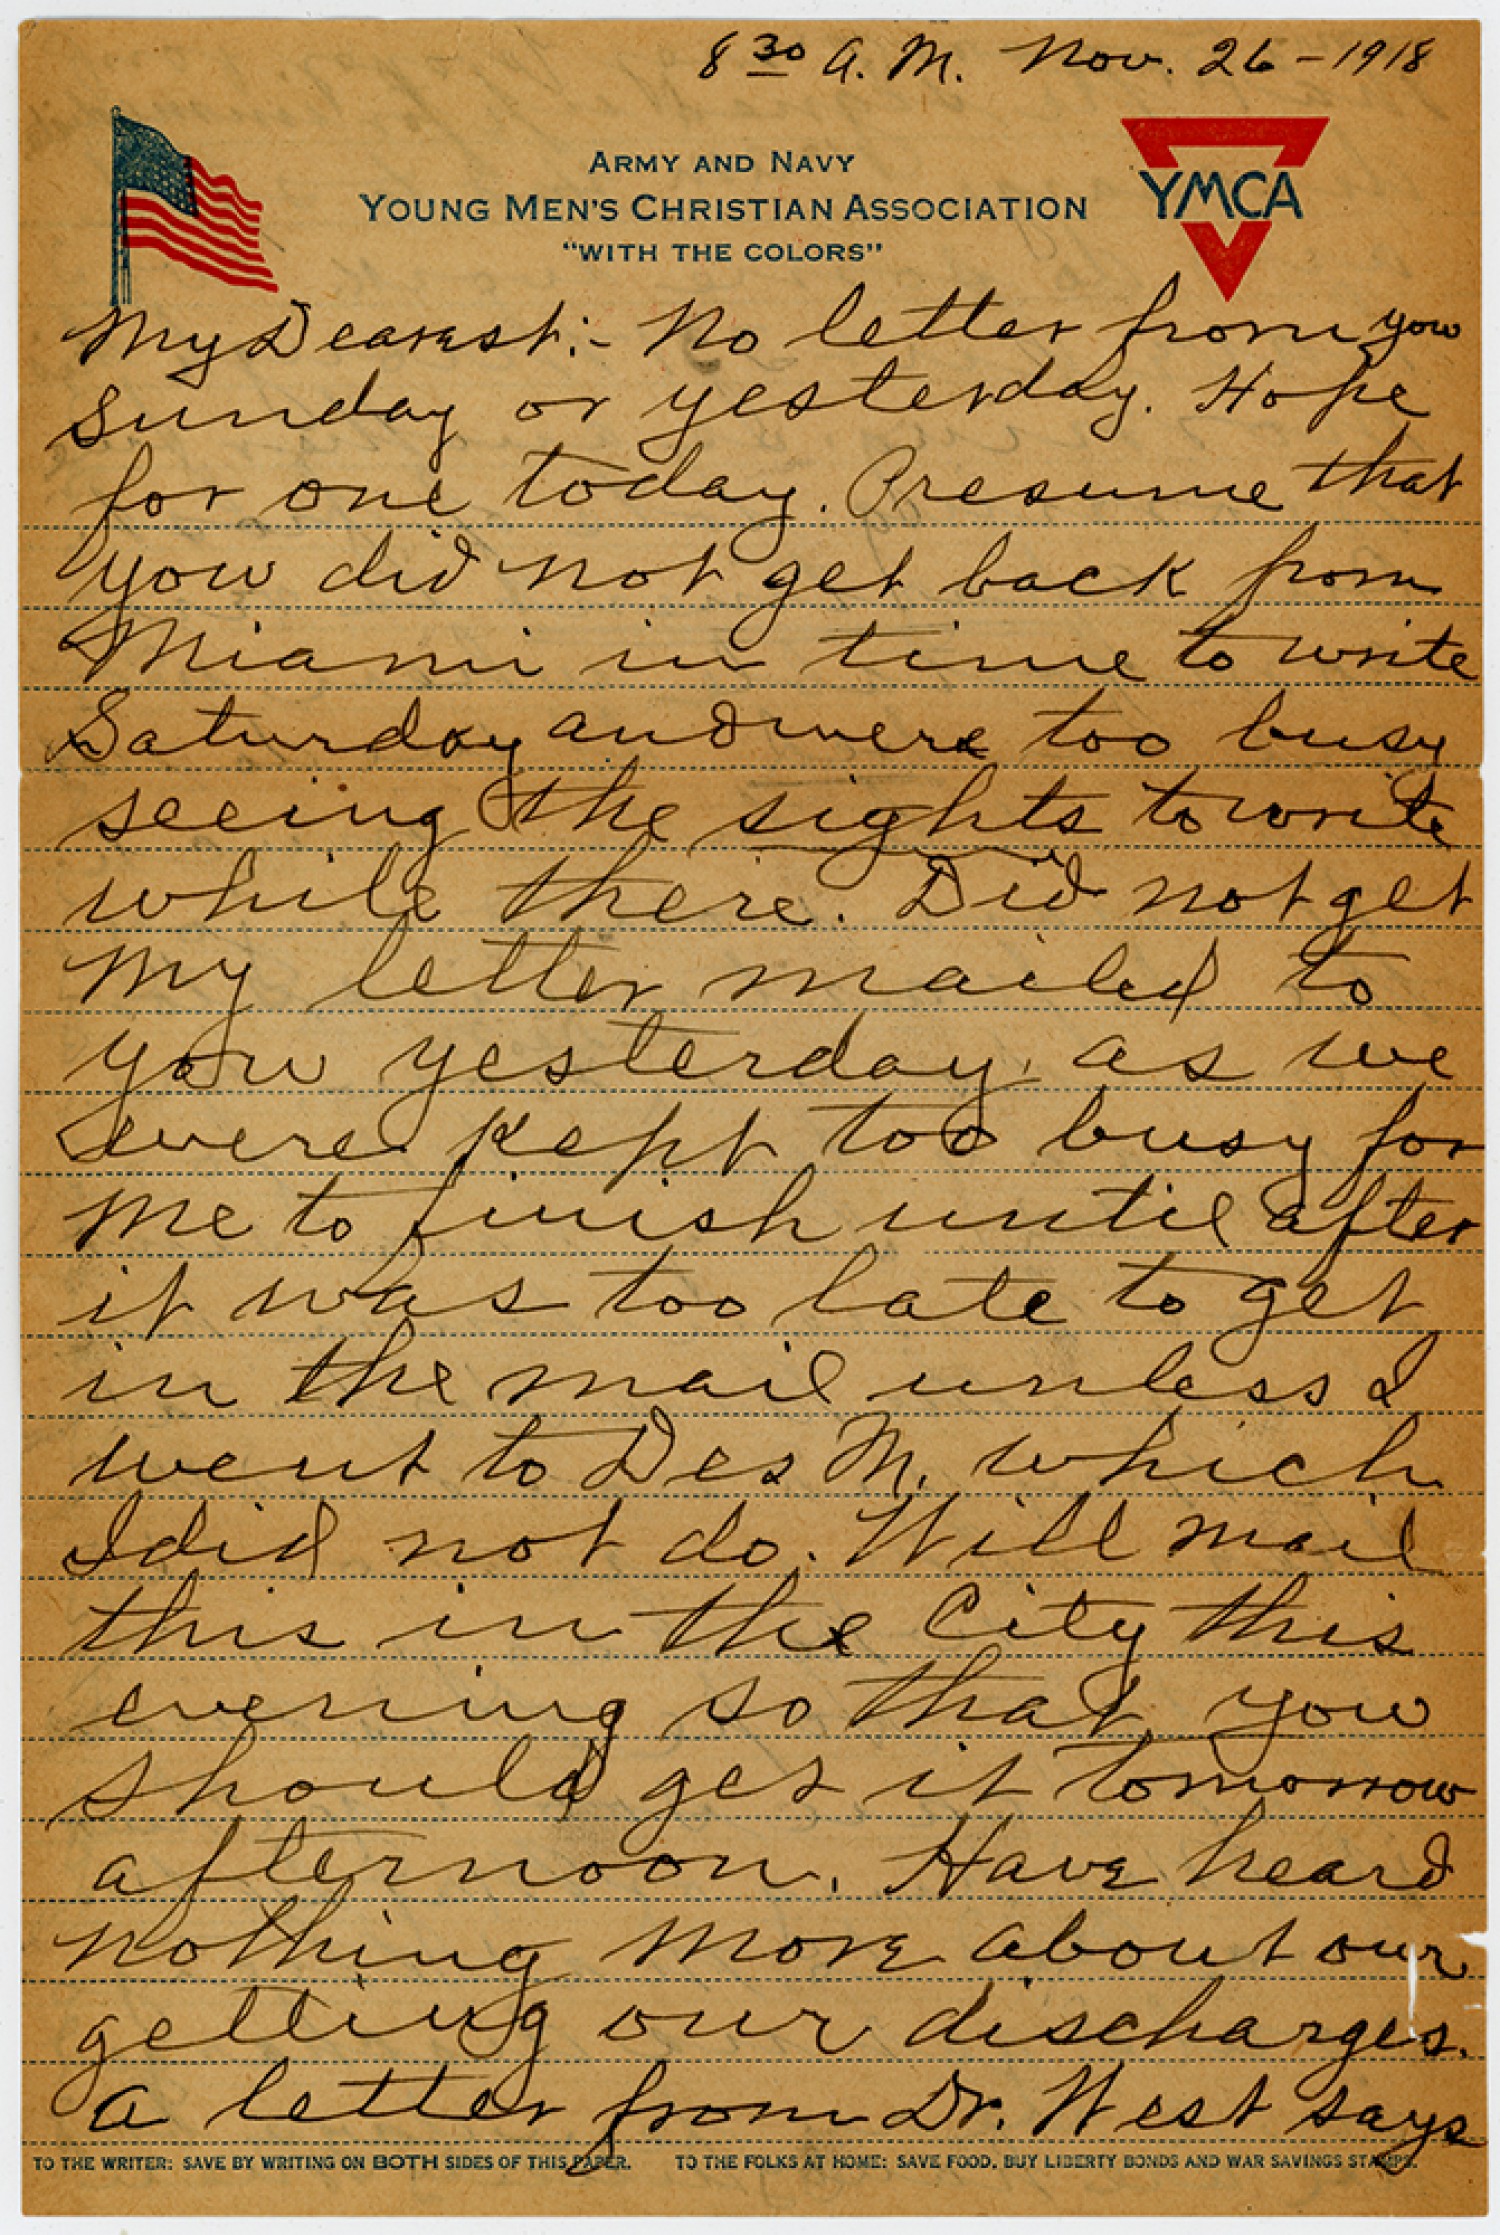 8 30 A. M. Nov. 26 - 1918
ARMY AND NAVY
YOUNG MEN'S CHRISTIAN ASSOCIATION
"WITH THE COLORS"
YMCA
My Dearest:- No letter from you
Sunday or yesterday. Hope
for one today. Presume that
you did not get back from
Miami in time to write
Saturday and were too busy
seeing the sights to write
while there. Did not get
my letter mailed to
you yesterday, as we
were kept too busy for
me to finish until after
it was too late to get
in the mail unless I
went to Des M. which
I did not do. Will mail
this in the City this
evening so that you
should get it tomorrow
afternoon. Have heard
nothing more about our
getting our discharges.
A letter from Dr. West says
TO THE WRITER: SAVE BY WRITING ON BOTH SIDES OF THIS PAPER. TO THE FOLKS AT HOME: SAVE FOOD, BUY LIBERTY BONDS AND WAR SAVINGS STAMPS.